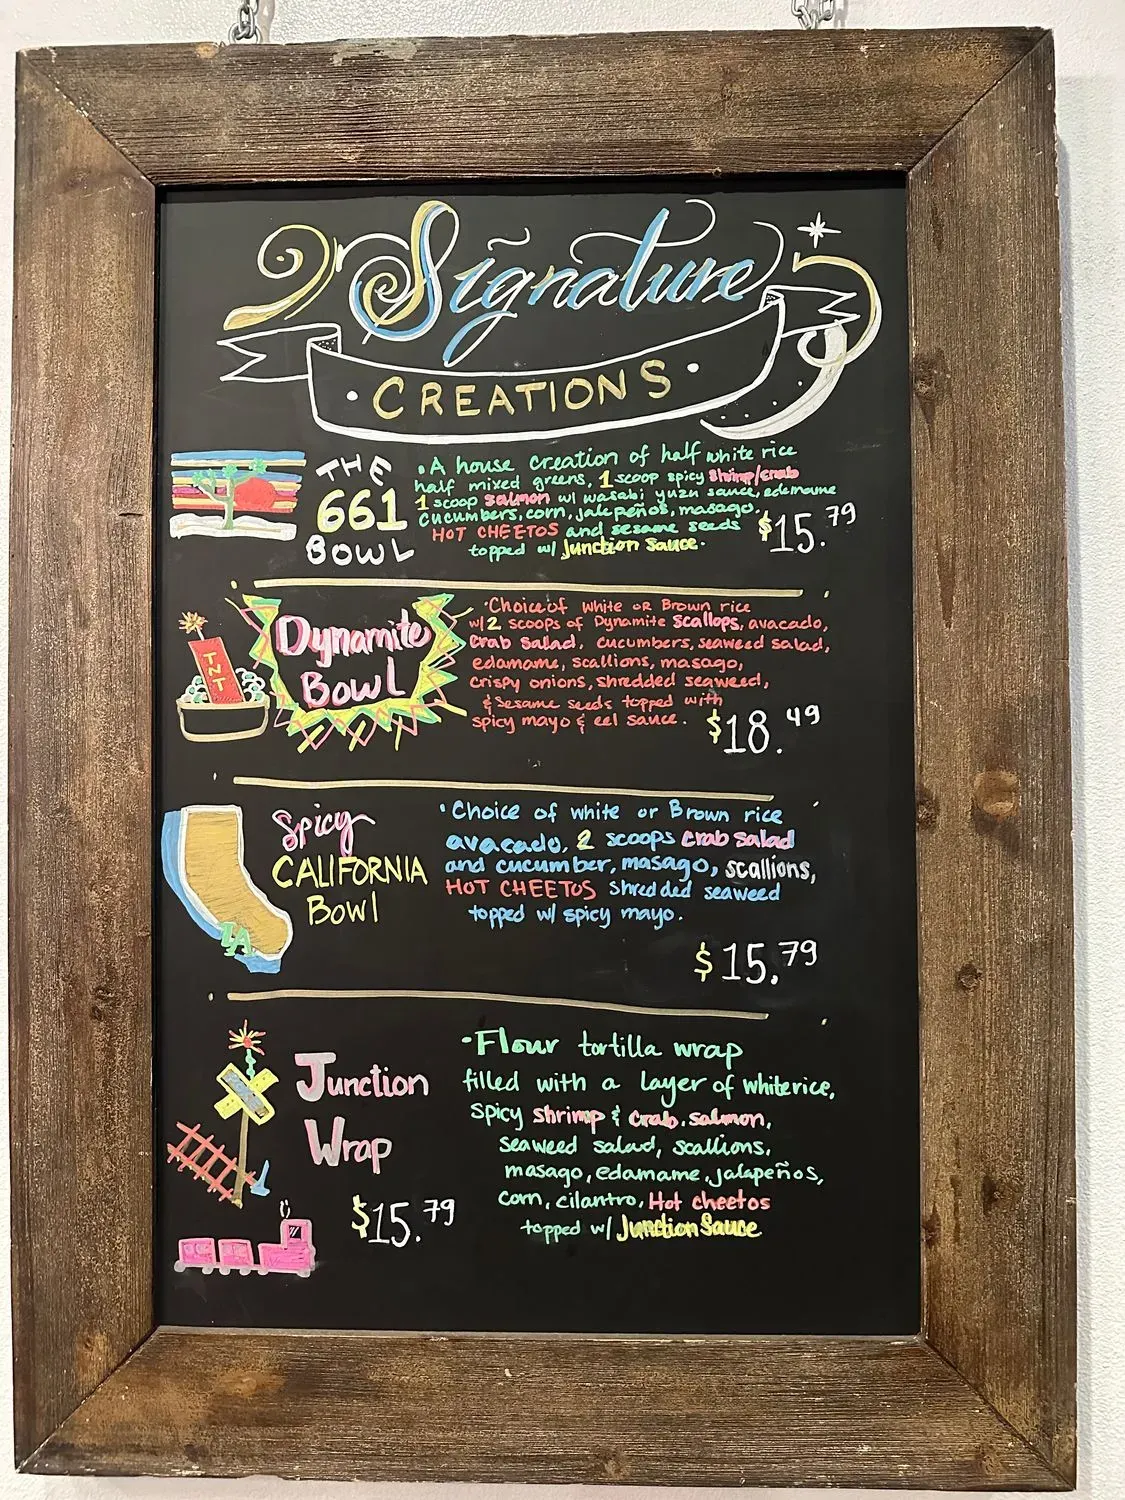 Signature
• CREATIONS •
THE
661
BOWL
• A house creation of half white rice
half mixed greens, 1 scoop spicy shrimp/crab
1 scoop salmon w/ wasabi yuzu sauce, edemame
cucumbers, corn, jalepeños, masago.
HOT CHEETOS and sesame seeds
topped w/ Junction Sauce.
$15.79
TNT
Dynamite
Bowl
• Choice of white or Brown rice
w/2 scoops of Dynamite Scallops, avacado,
Crab Salad, cucumbers, seaweed salad,
edamame, scallions, masago,
crispy onions, shredded seaweed,
& sesame seeds topped with
spicy mayo & eel sauce.
$18.49
Spicy
CALIFORNIA
Bowl
LA
• Choice of white or Brown rice
avacado, 2 scoops Crab Salad
and cucumber, masago, scallions,
HOT CHEETOS shredded seaweed
topped w/ spicy mayo.
$15.79
Junction
Wrap
$15.79
• Flour tortilla wrap
filled with a layer of white rice,
spicy shrimp & crab, salmon,
seaweed salad, scallions,
masago, edamame, jalapeños,
corn, cilantro, Hot cheetos
topped w/ Junction Sauce